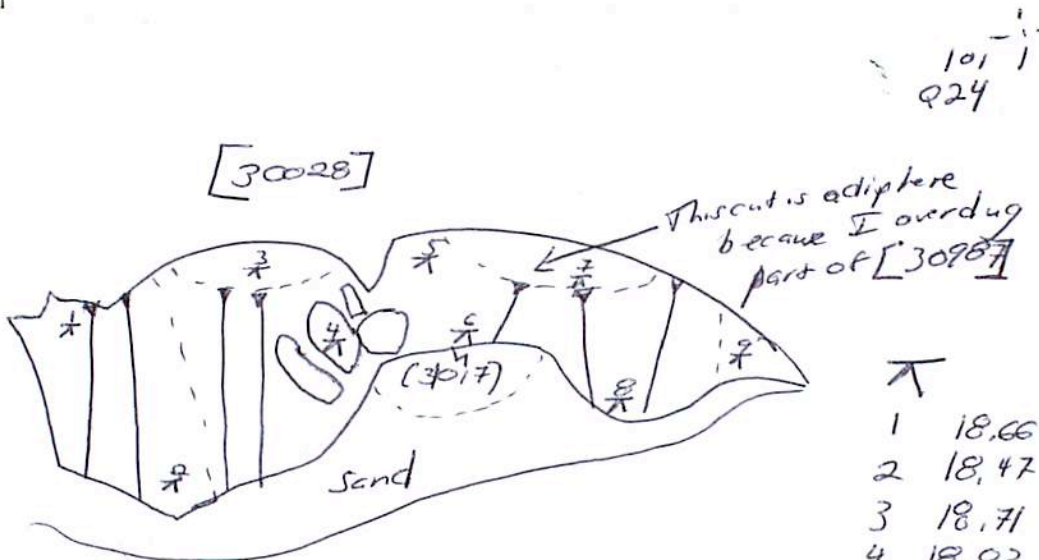 101
Q24
[30028]
This cut is a dip here
because I overdug
part of [30987]
3
5
7
1
4
6
9
(3017)
8
2
sand
1 18.66
2 18.47
3 18.71